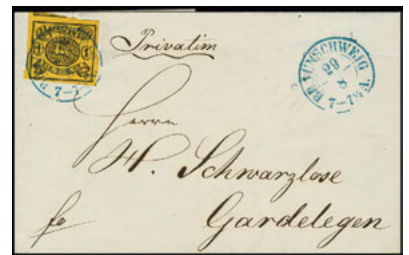 1 1
Privatim
BRAUNSCHWEIG
29
8
7-7½ A.
7-7
Herrn
H. Schwarzlose
fo
Gardelegen